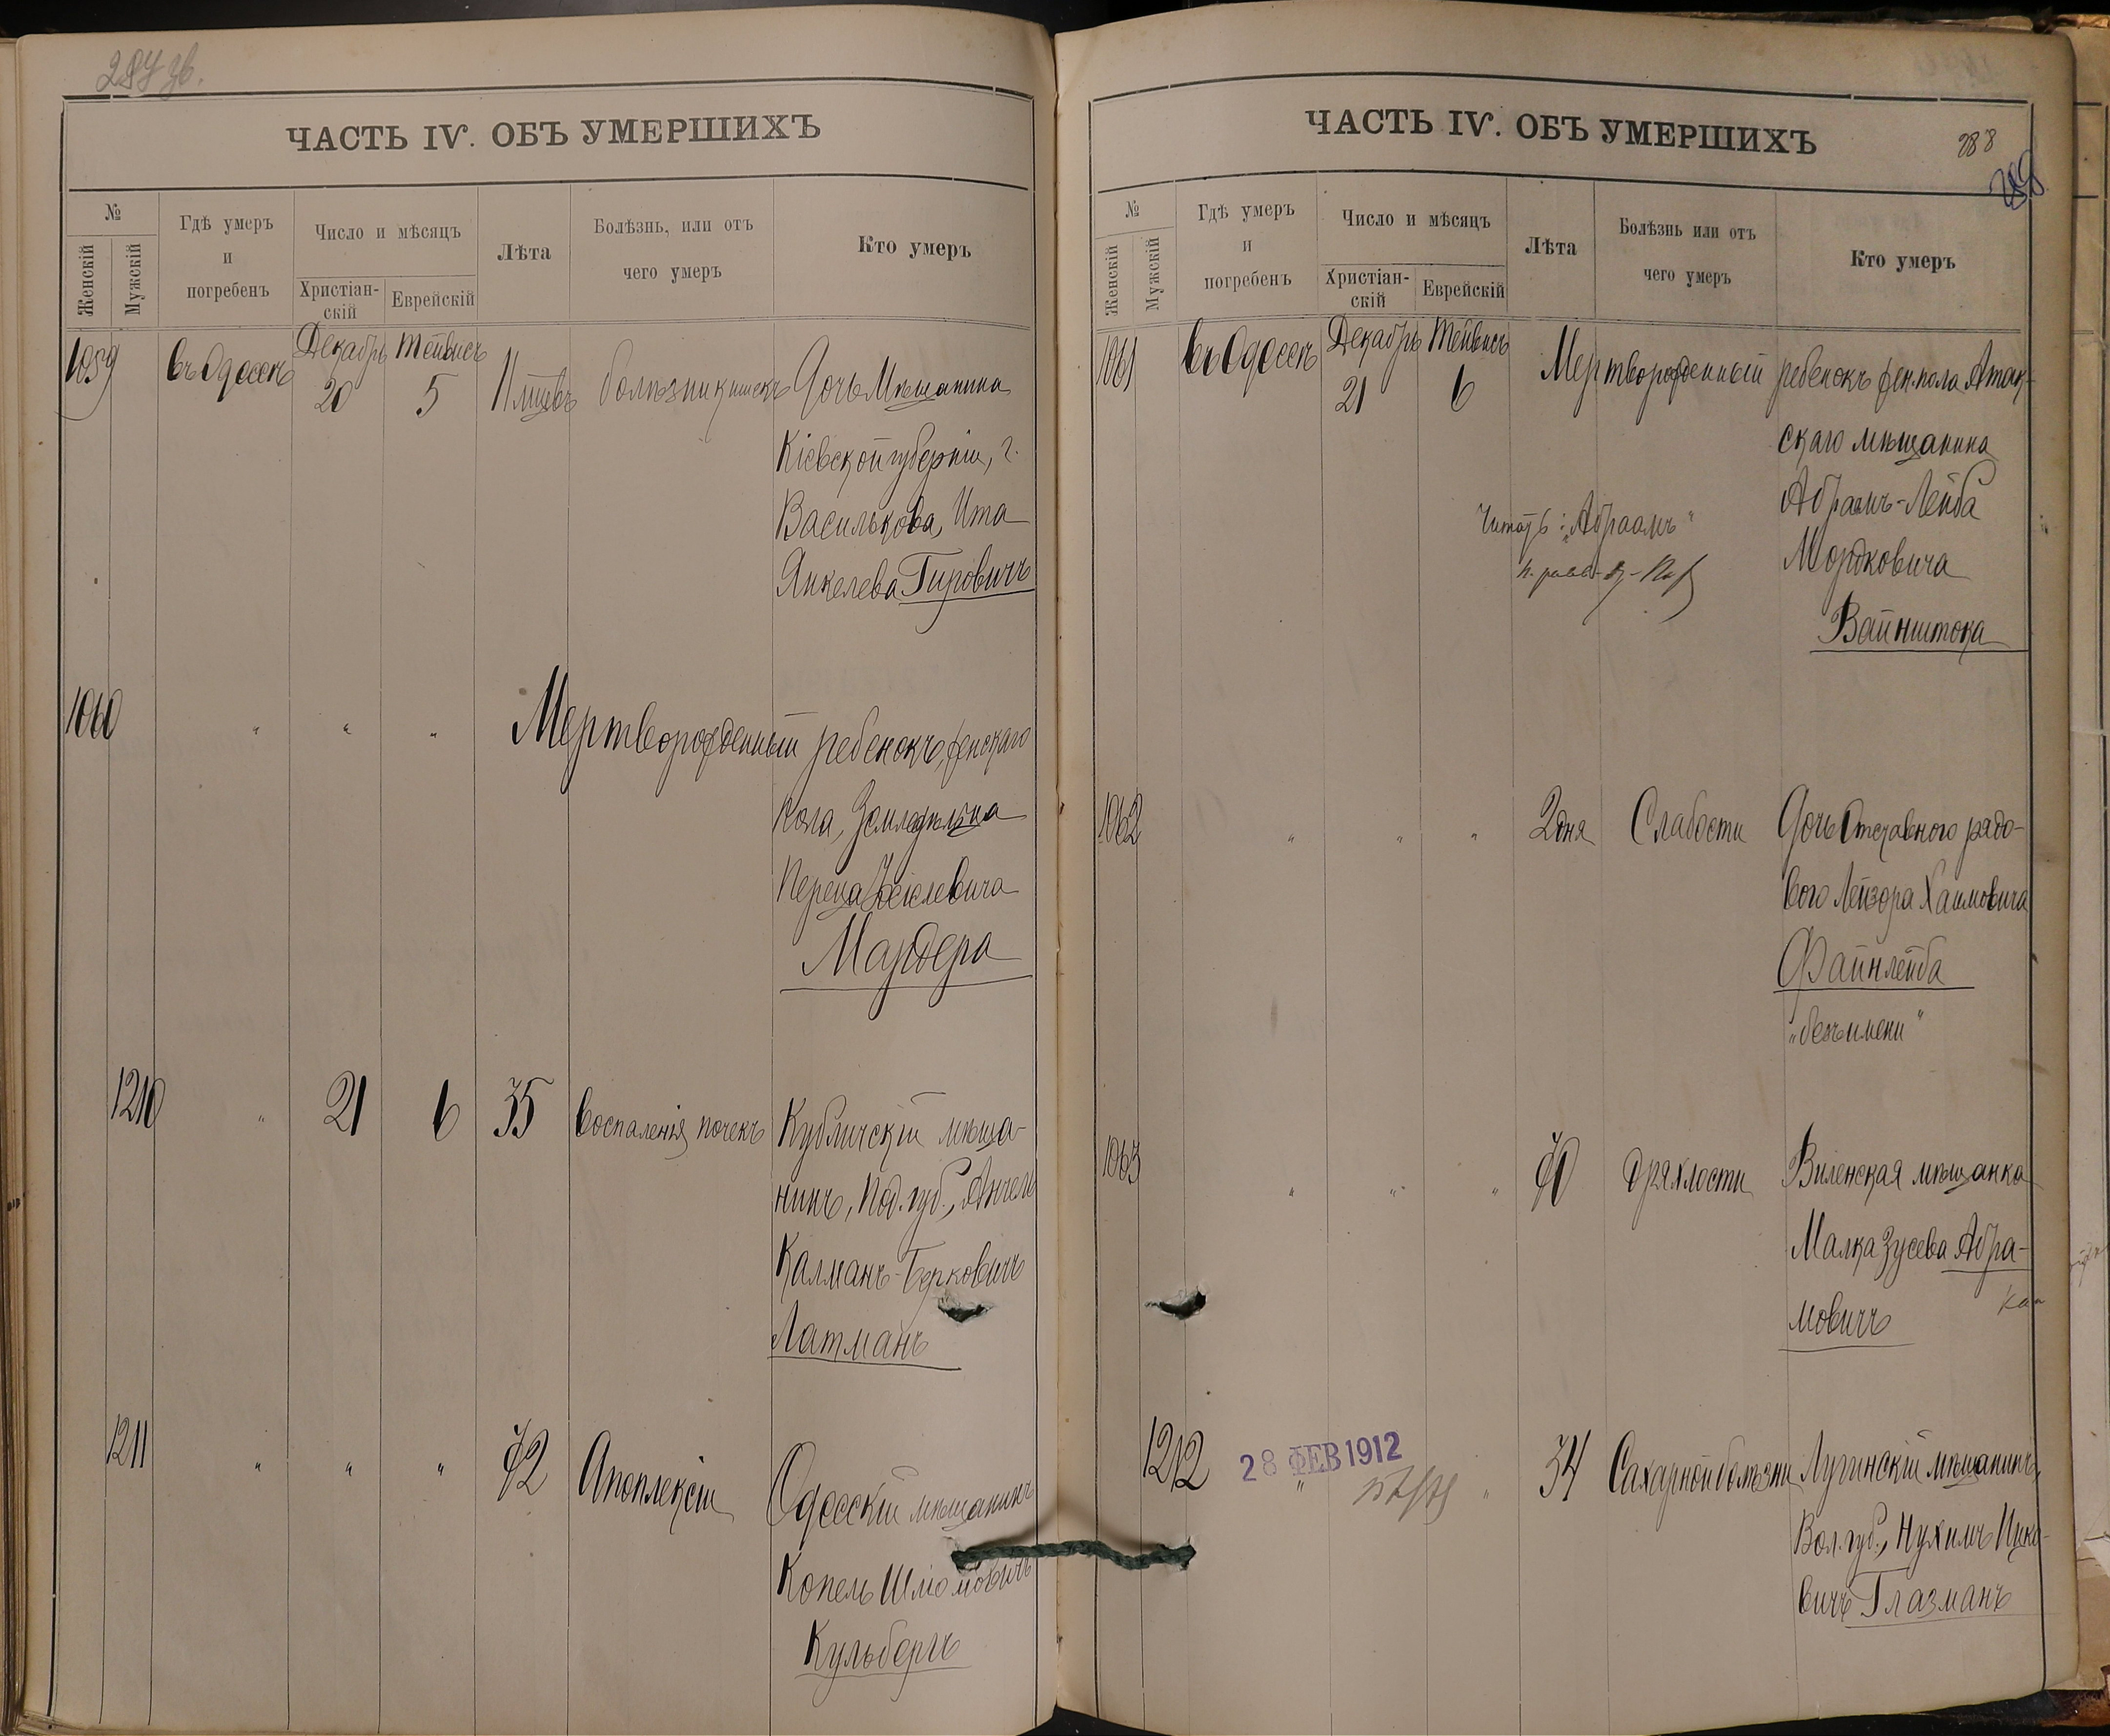 287 зв.
ЧАСТЬ IV. ОБЪ УМЕРШИХЪ
№
Женскій
Мужскій
Гдѣ умеръ
и
погребенъ
Число и мѣсяцъ
Христіан-
скій
Еврейскій
Лѣта
Болѣзнь, или отъ
чего умеръ
Кто умеръ
1059 въ Одессѣ Декабрь 20 Тейвисъ 5 11 мцевъ болѣзни кишекъ Дочь Мѣщанина
Кіевской губерніи, г.
Василькова, Ита
Янкелева Гировичъ
1060 " " " Мертворожденный ребенокъ, женскаго
пола, Земледѣльца
Переца
Мардера
1210 " 21 6 35 Воспаленія почекъ Кубличскій мѣща-
нинъ, Под. губ., Анчель
Калманъ-Берковичъ
Латманъ
1211 " " " 72 Апоплексіи Одесскій мѣщанинъ
Копель Шлiомовичъ
Кульбергъ
ЧАСТЬ IV. ОБЪ УМЕРШИХЪ
288
288
№
Женскій
Мужскій
Гдѣ умеръ
и
погребенъ
Число и мѣсяцъ
Христіан-
скій
Еврейскій
Лѣта
Болѣзнь или отъ
чего умеръ
Кто умеръ
1061 въ Одессѣ Декабрь 21 Тейвисъ 6 Мертворожденный ребенокъ жен. пола Атак-
скаго мѣщанина
Абрамъ-Лейба
Мордковича
Вайнштока
Читать: „Абраамъ"
1062 " " " 2 дня Слабости Дочь Отставного рядо-
вого Лейзора Хаимовича
Файнлейба
„безъ имени"
1063 " " " 70 Дряхлости Виленская мѣщанка
Малка Зусева Абра-
мовичъ
1212 " " 34 Сахарной болѣзни Лугинскій мѣщанинъ,
Вол. губ., Нухимъ Ицко-
вичъ Глазманъ
28 ФЕВ 1912